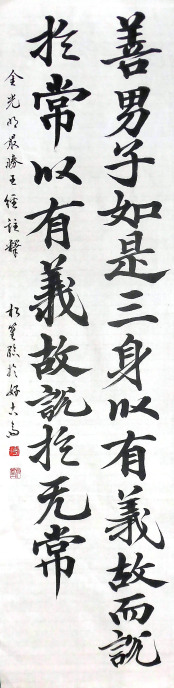 善男子如是三身以有義故而說
於常以有義故說於无常
金光明最勝王經註釋
臨於好古